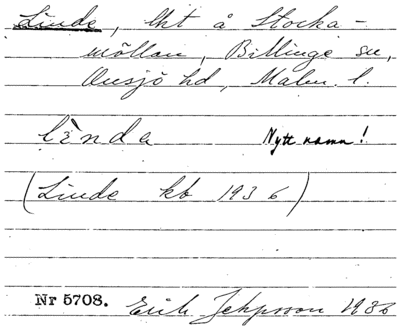 Linde, lht å Stocka-
möllan, Billinge sn,
Onsjö hd, Malm. l.
lìnda Nytt namn!
(Linde kb 1936)
Nr 5708. Erik Jeppsson 1936